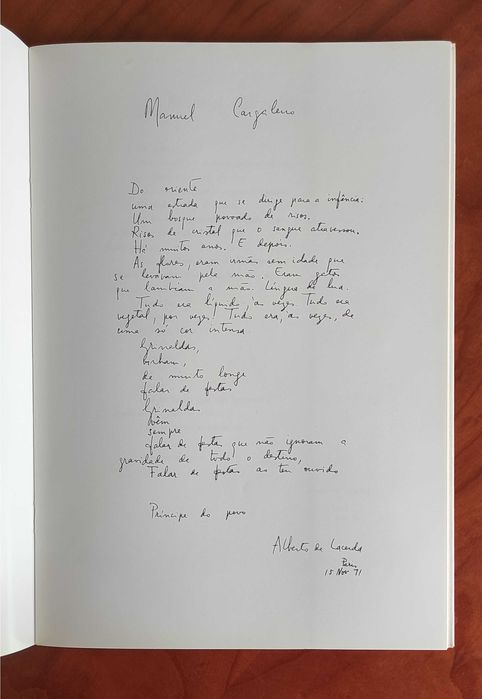 Manuel Cargaleiro
Do oriente
uma estrada que se dirige para a infância.
Um bosque povoado de risos.
Risos de cristal que o sangue atravessou.
Há muitos anos. E depois.
As flores, eram irmãs sem idade que
se levavam pela mão. Eram gatos
que lambiam a mão. Língua de lua.
Tudo era líquido, às vezes. Tudo era
vegetal, por vezes. Tudo era, às vezes, de
uma só cor intensa
Grinaldas,
vinham,
de muito longe
falar de festas
Grinaldas
Vêm
sempre
falar de festas que não ignoram a
gravidade de todo o destino,
Falar de festas ao teu ouvido
Príncipe do povo
Alberto de Lacerda
Paris
15 Nov 71